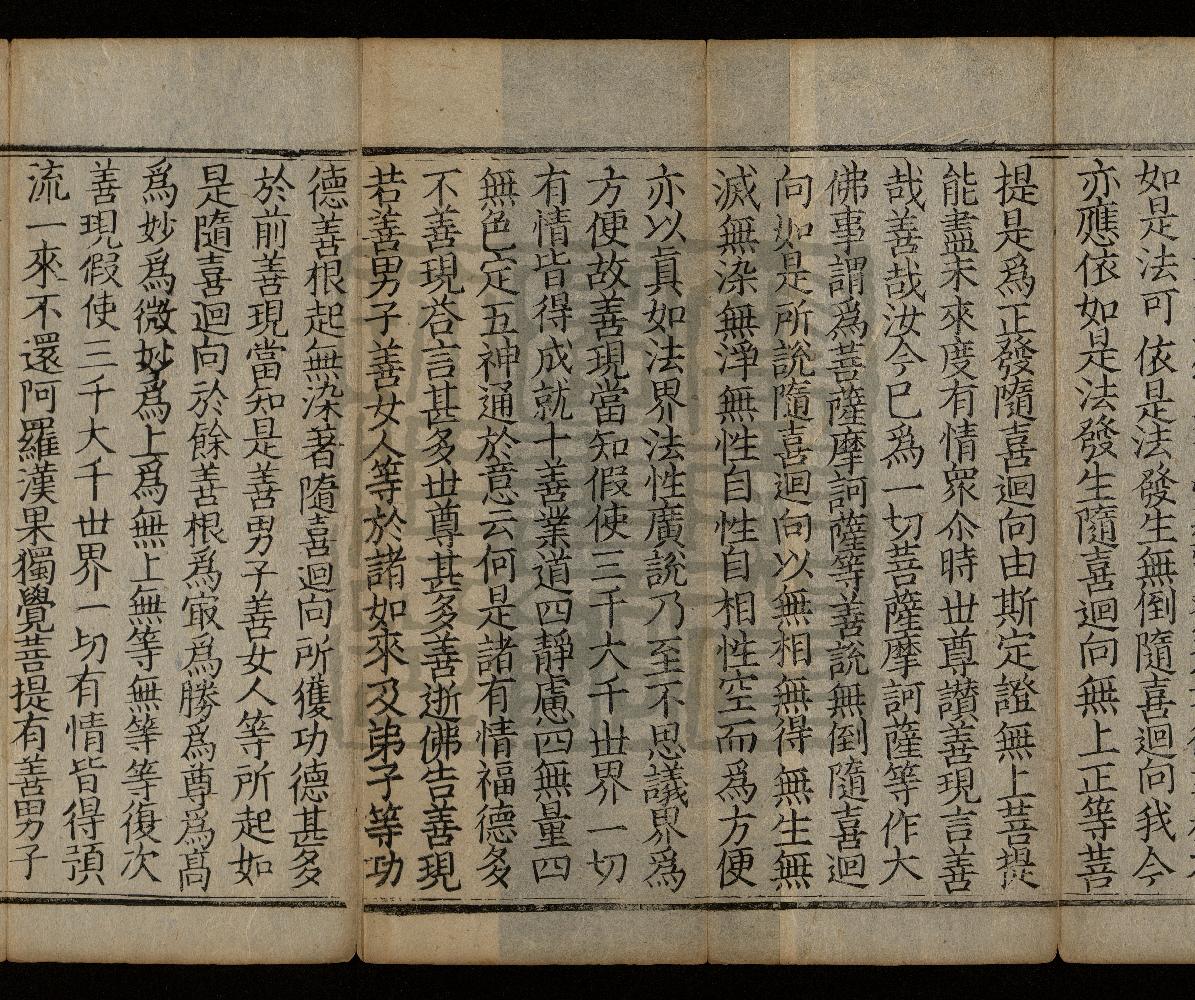 如是法可依是法發生無倒隨喜迴向我今
亦應依如是法發生隨喜迴向無上正等菩
提是為正發隨喜迴向由斯定證無上菩提
能盡未來度有情眾尒時世尊讚善現言善
哉善哉汝今已為一切菩薩摩訶薩等作大
佛事謂為菩薩摩訶薩等善說無倒隨喜迴
向如是所說隨喜迴向以無相無得無生無
滅無染無淨無性自性自相性空而為方便
亦以真如法界法性廣說乃至不思議界為
方便故善現當知假使三千大千世界一切
有情皆得成就十善業道四靜慮四無量四
無色定五神通於意云何是諸有情福德多
不善現荅言甚多世尊甚多善逝佛告善現
若善男子善女人等於諸如來及弟子等功
德善根起無染著隨喜迴向所獲功德甚多
於前善現當知是善男子善女人等所起如
是隨喜迴向於餘善根為冣為勝為尊為髙
為妙為微妙為上為無上無等無等等復次
善現假使三千大千世界一切有情皆得湏
流一來不還阿羅漢果獨覺菩提有善男子